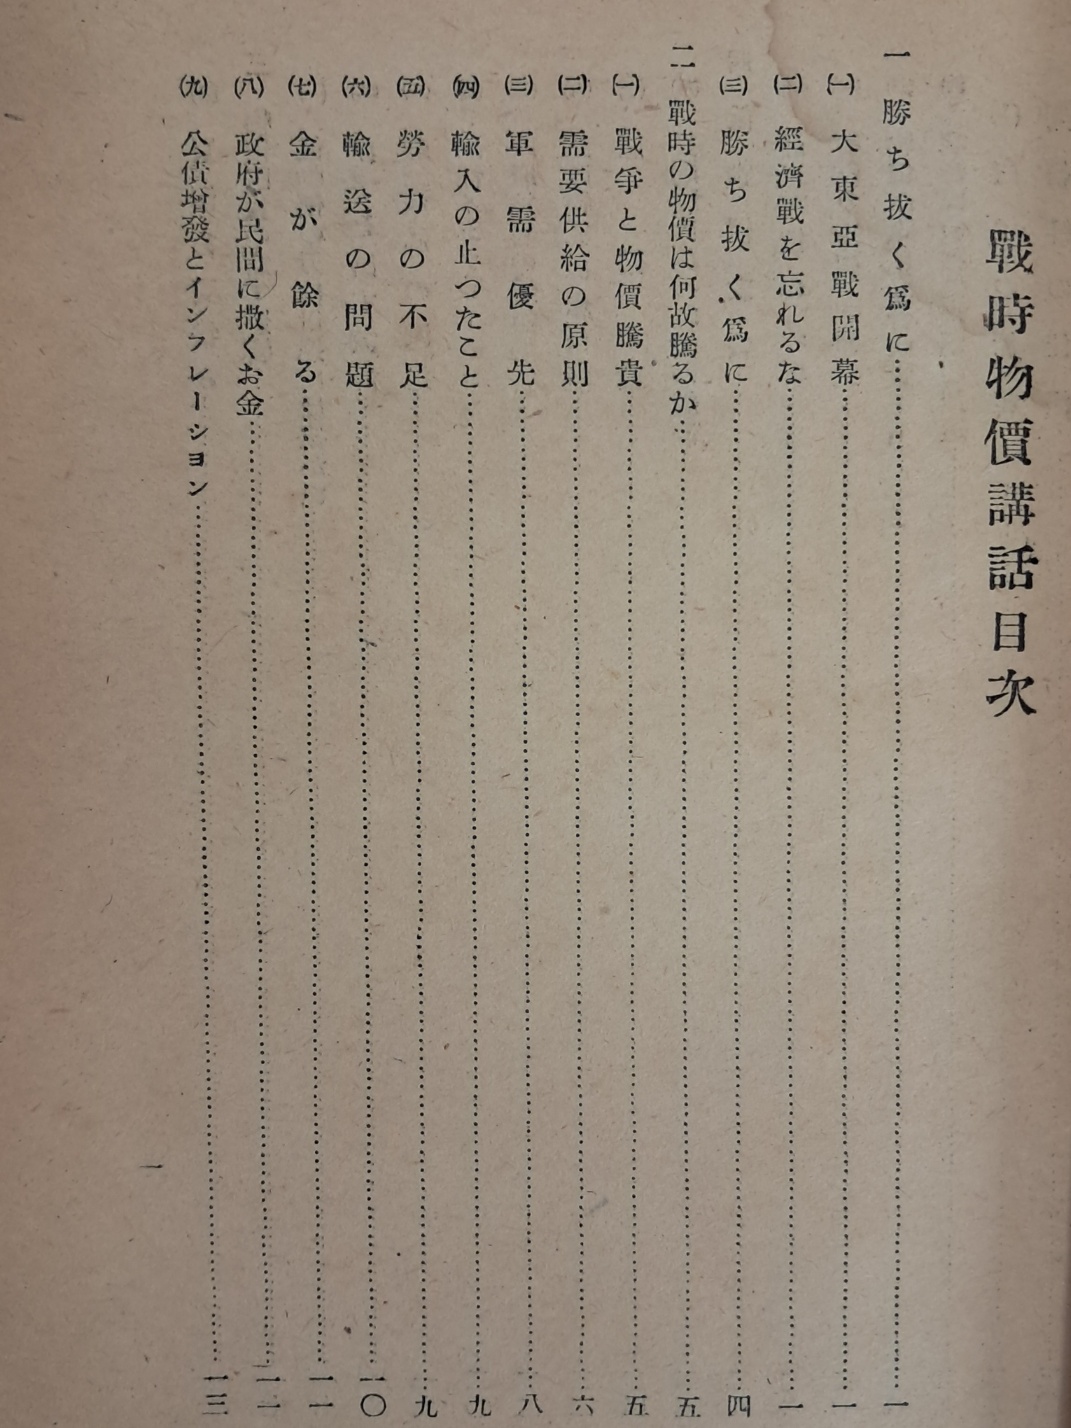 戰時物價講話目次
一 勝ち拔く爲に……一
㈠ 大東亞戰開幕……一
㈡ 經濟戰を忘れるな……一
㈢ 勝ち拔く爲に……四
二 戰時の物價は何故騰るか……五
㈠ 戰爭と物價騰貴……五
㈡ 需要供給の原則……六
㈢ 軍需優先……八
㈣ 輸入の止つたこと……九
㈤ 勞力の不足……九
㈥ 輸送の問題……一〇
㈦ 金が餘る……一一
㈧ 政府が民間に撒くお金……一一
㈨ 公債增發とインフレーシヨン……一三